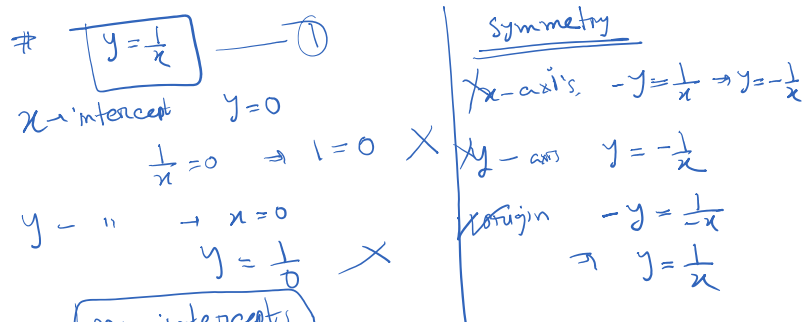 # y = 1/x —— ①
x-intercept y = 0
1/x = 0 → 1 = 0 X
y - " → x = 0
y = 1/0 X
no intercepts
Symmetry
x-axis, -y = 1/x → y = -1/x
y-axis y = -1/x
origin -y = 1/-x
→ y = 1/x